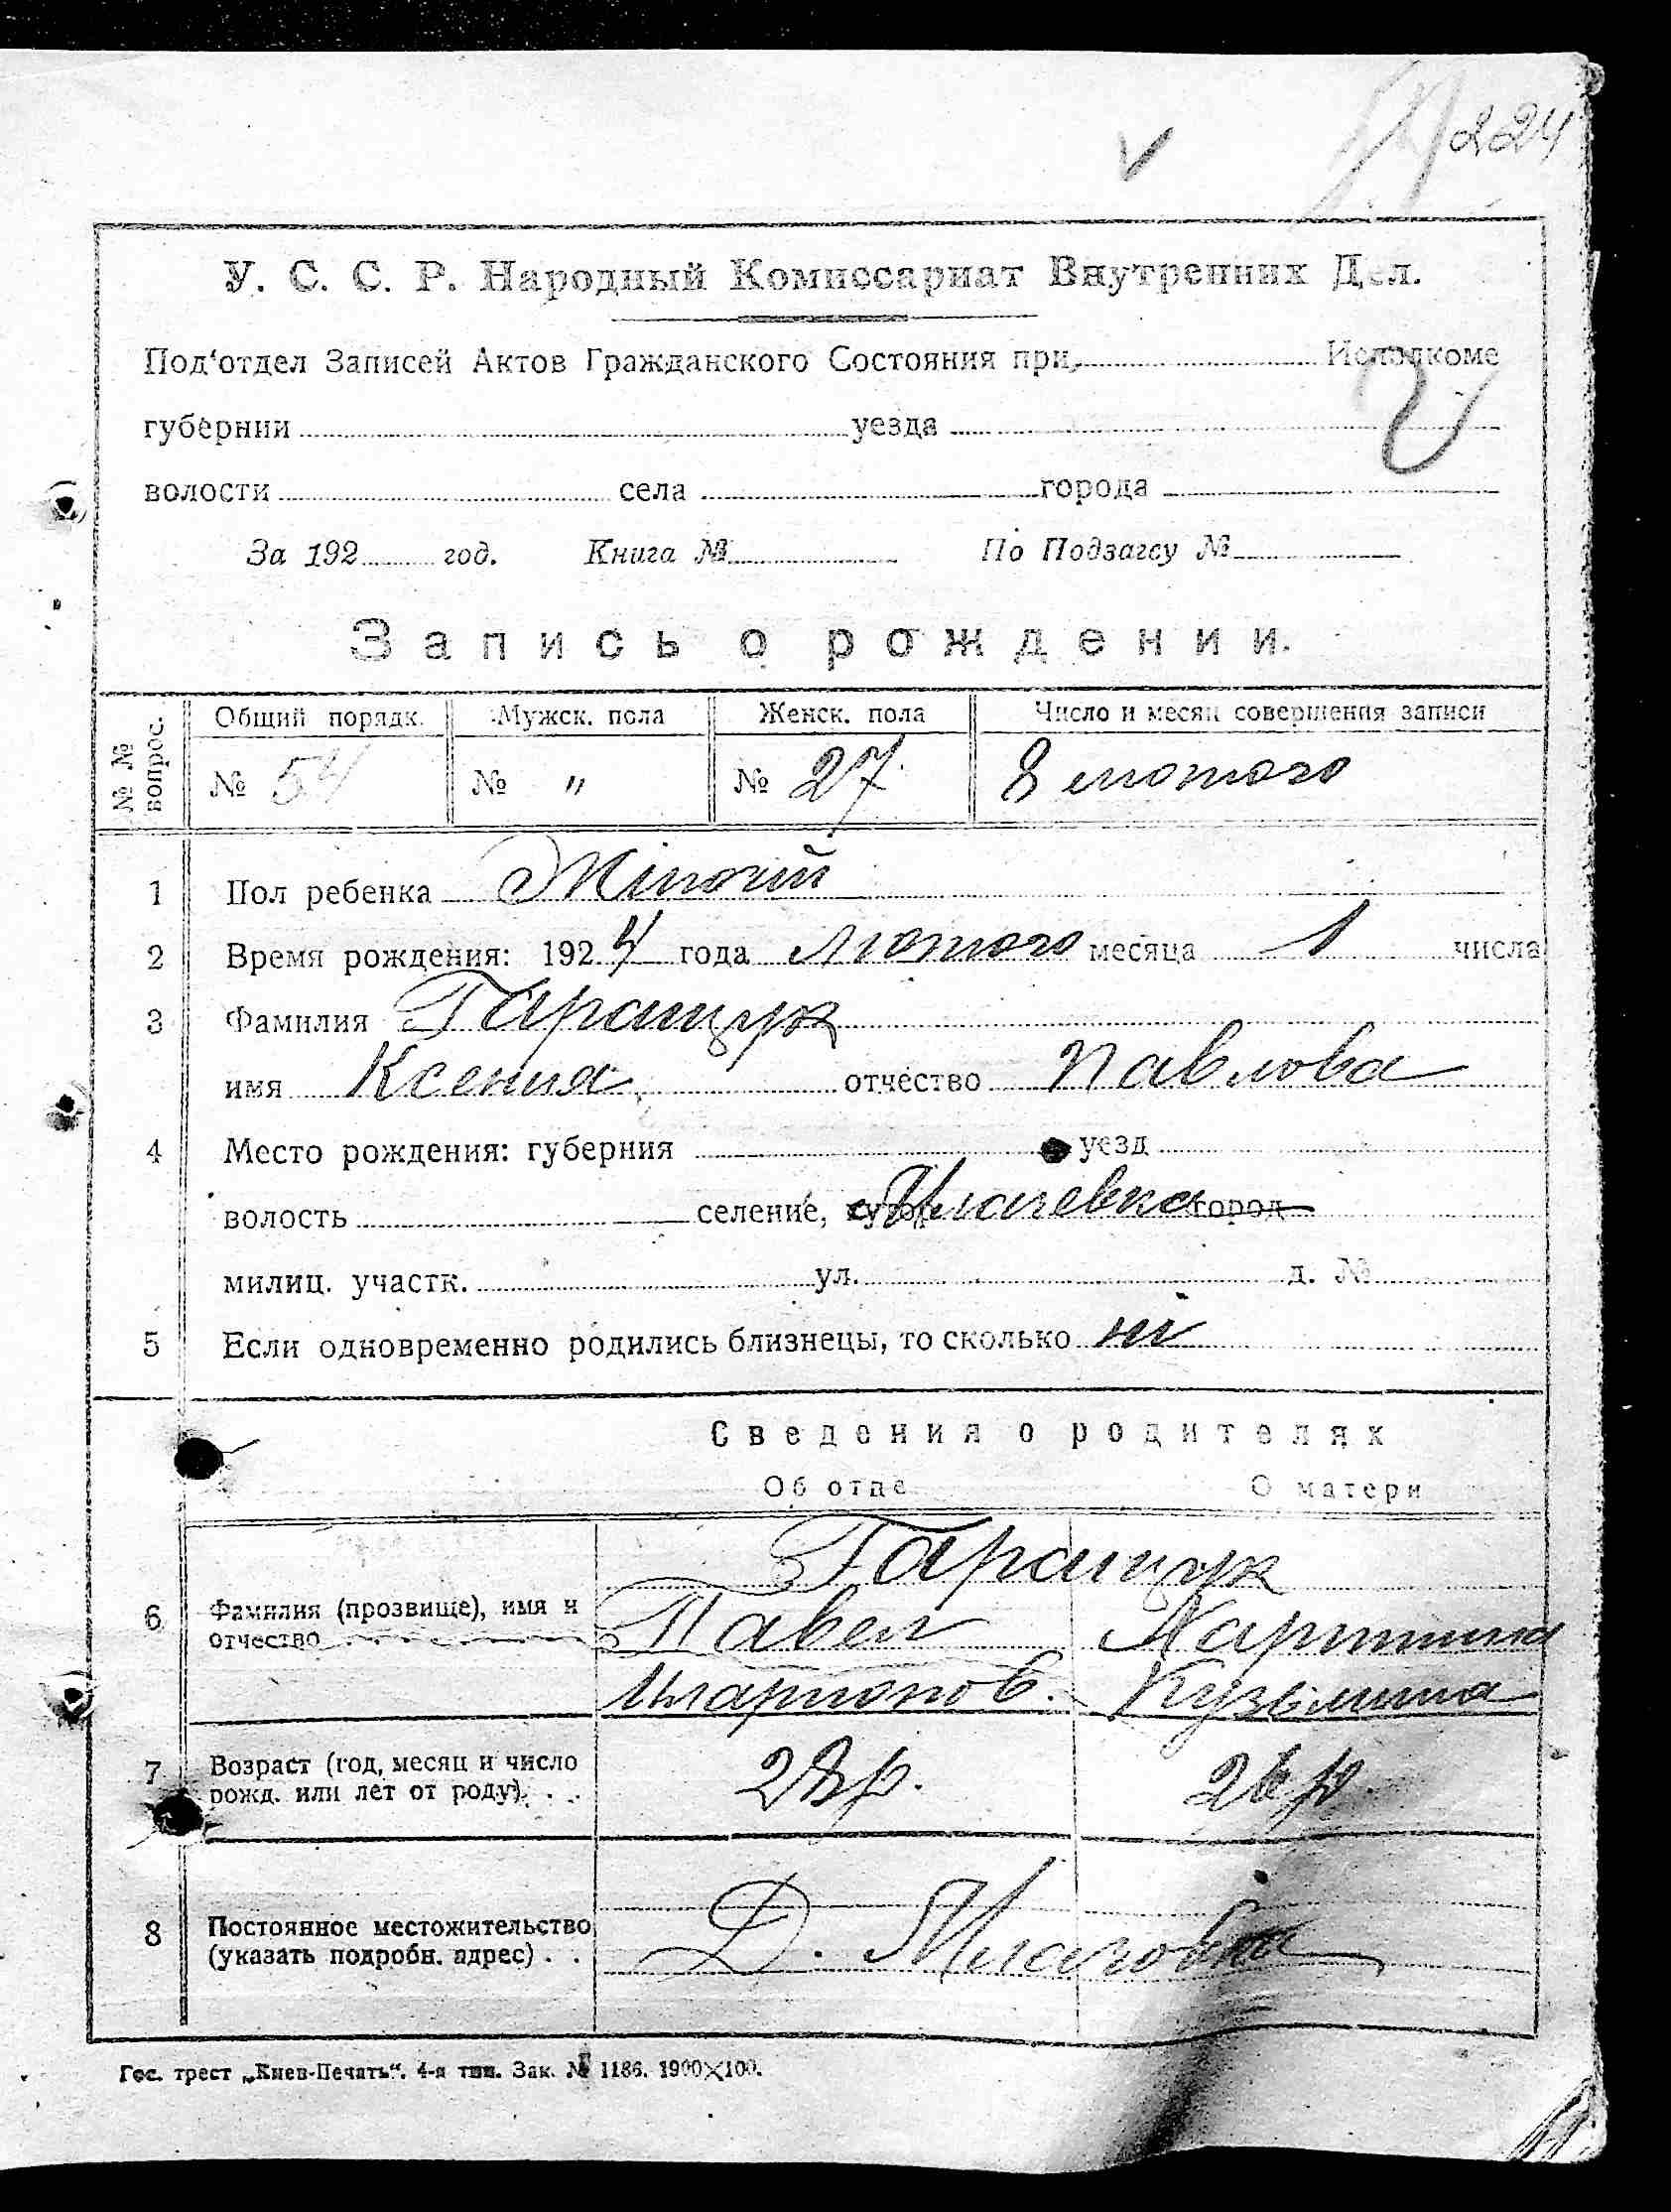 224
У. С. С. Р. Народный Комиссариат Внутренних Дел.
Под'отдел Записей Актов Гражданского Состояния при Исполкоме
губернии уезда
волости села города
За 192 год. Книга № По Подзагсу №
Запись о рождении.
№ № вопрос. Общий порядк. Мужск. пола Женск. пола Число и месяц совершения записи
№ 54 № " № 27 8 лютого
1 Пол ребенка Жіночий
2 Время рождения: 1924 года лютого месяца 1 числа
3 Фамилия Таращук
имя Ксения отчество Павлова
4 Место рождения: губерния уезд
волость селение, город
милиц. участк. ул. д. №
5 Если одновременно родились близнецы, то сколько ні
Сведения о родителях
Об отце О матери
Таращук
6 Фамилия (прозвище), имя и отчество Павел Харитина
Иларионов. Кузьмина
7 Возраст (год, месяц и число рожд. или лет от роду) . . 28 р. 26 р.
8 Постоянное местожительство (указать подробн. адрес) . . Д.
Гос. трест „Киев-Печать“. 4-я тип. Зак. № 1186. 1900×100.